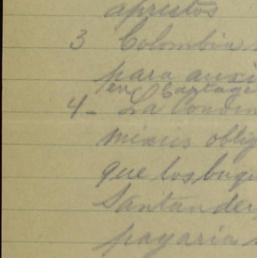 aprestos
3 Colombia
para auxi
en Cartage
4- La Condi
misiis oblig
que los buqu
Santander
pagaria